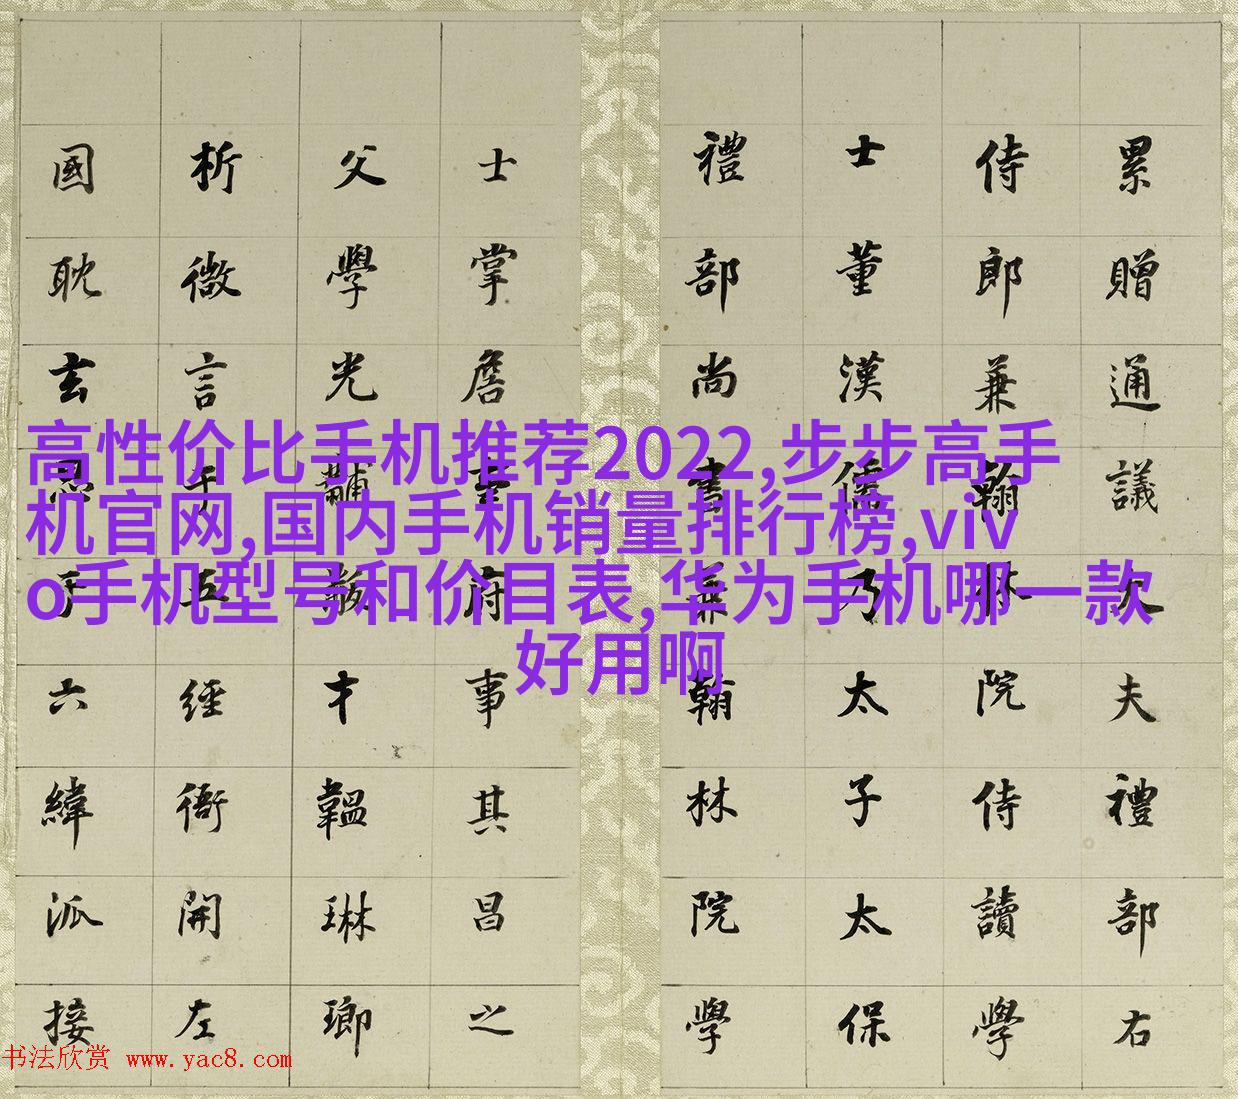 累贈通議大夫禮部右
侍郎兼翰林院侍讀學
士董漢儒乃太子太保
禮部尚書兼翰林院學
士掌詹事府事其昌之
父學光黼黻才韞琳瑯
析微言于五經衙開左
國耽玄思于六緯泒接
高性价比手机推荐2022,步步高手
机官网,国内手机销量排行榜,viv
o手机型号和价目表,华为手机哪一款
好用啊
书法欣赏 www.yac8.com